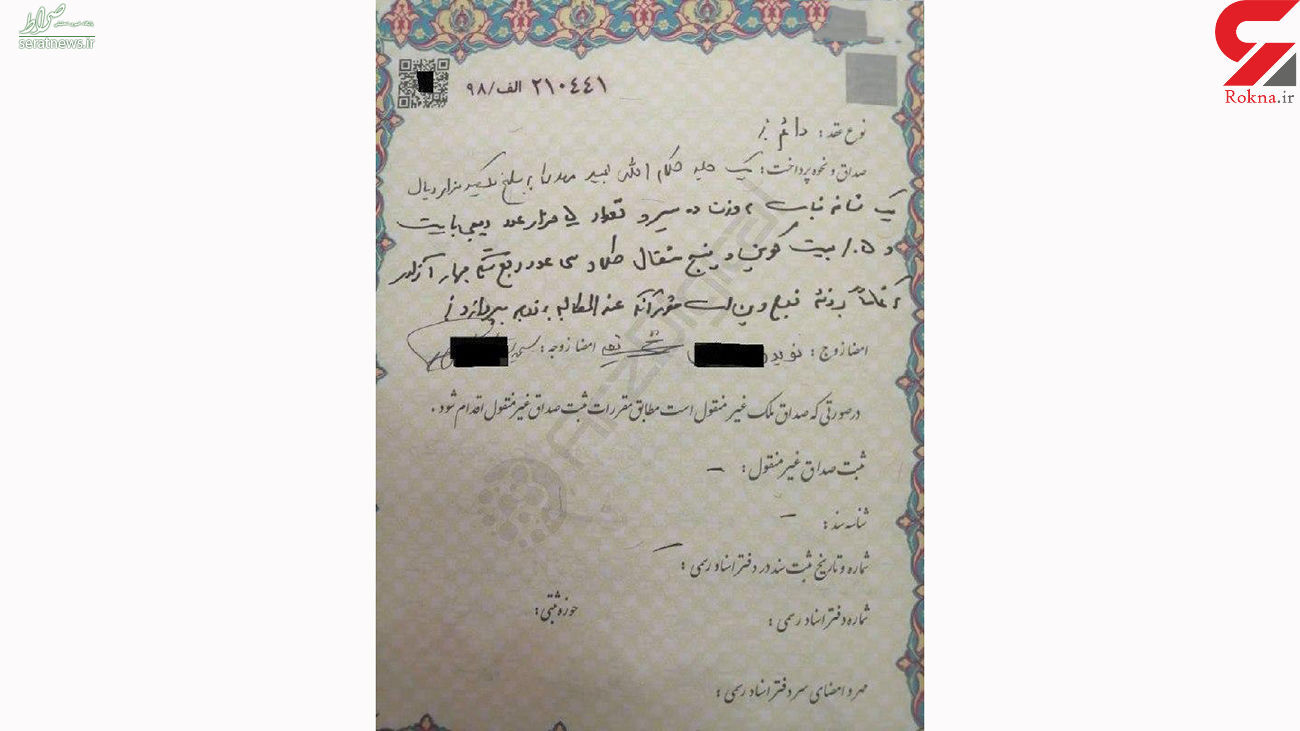 صراط
seratnews.ir
Rokna.ir
۲۱۰۴۴۱ الف/۹۸
نوع عقد: دائم
صداق و نحوه پرداخت: یک جلد کلام الله مجید مهریه به مبلغ یکصد هزار ریال
یک شاخه نبات به وزن ده سیر و تعداد ۵ هزار عدد دیجی بایت
و ۰.۵ بیت کوین و پنج مثقال طلا و سی عدد ربع سکه بهار آزادی
که تماماً بر ذمه زوج دین است عندالمطالبه به زوجه بپردازد
امضا زوج: نوید امضا زوجه:
در صورتی که صداق ملک غیر منقول است مطابق مقررات ثبت صداق غیر منقول اقدام شود.
ثبت صداق غیر منقول: –
شناسه سند: –
شماره و تاریخ ثبت سند در دفتر اسناد رسمی: –
شماره دفتر اسناد رسمی: حوزه ثبتی:
مهر و امضای سردفتر اسناد رسمی:
ArzDigital